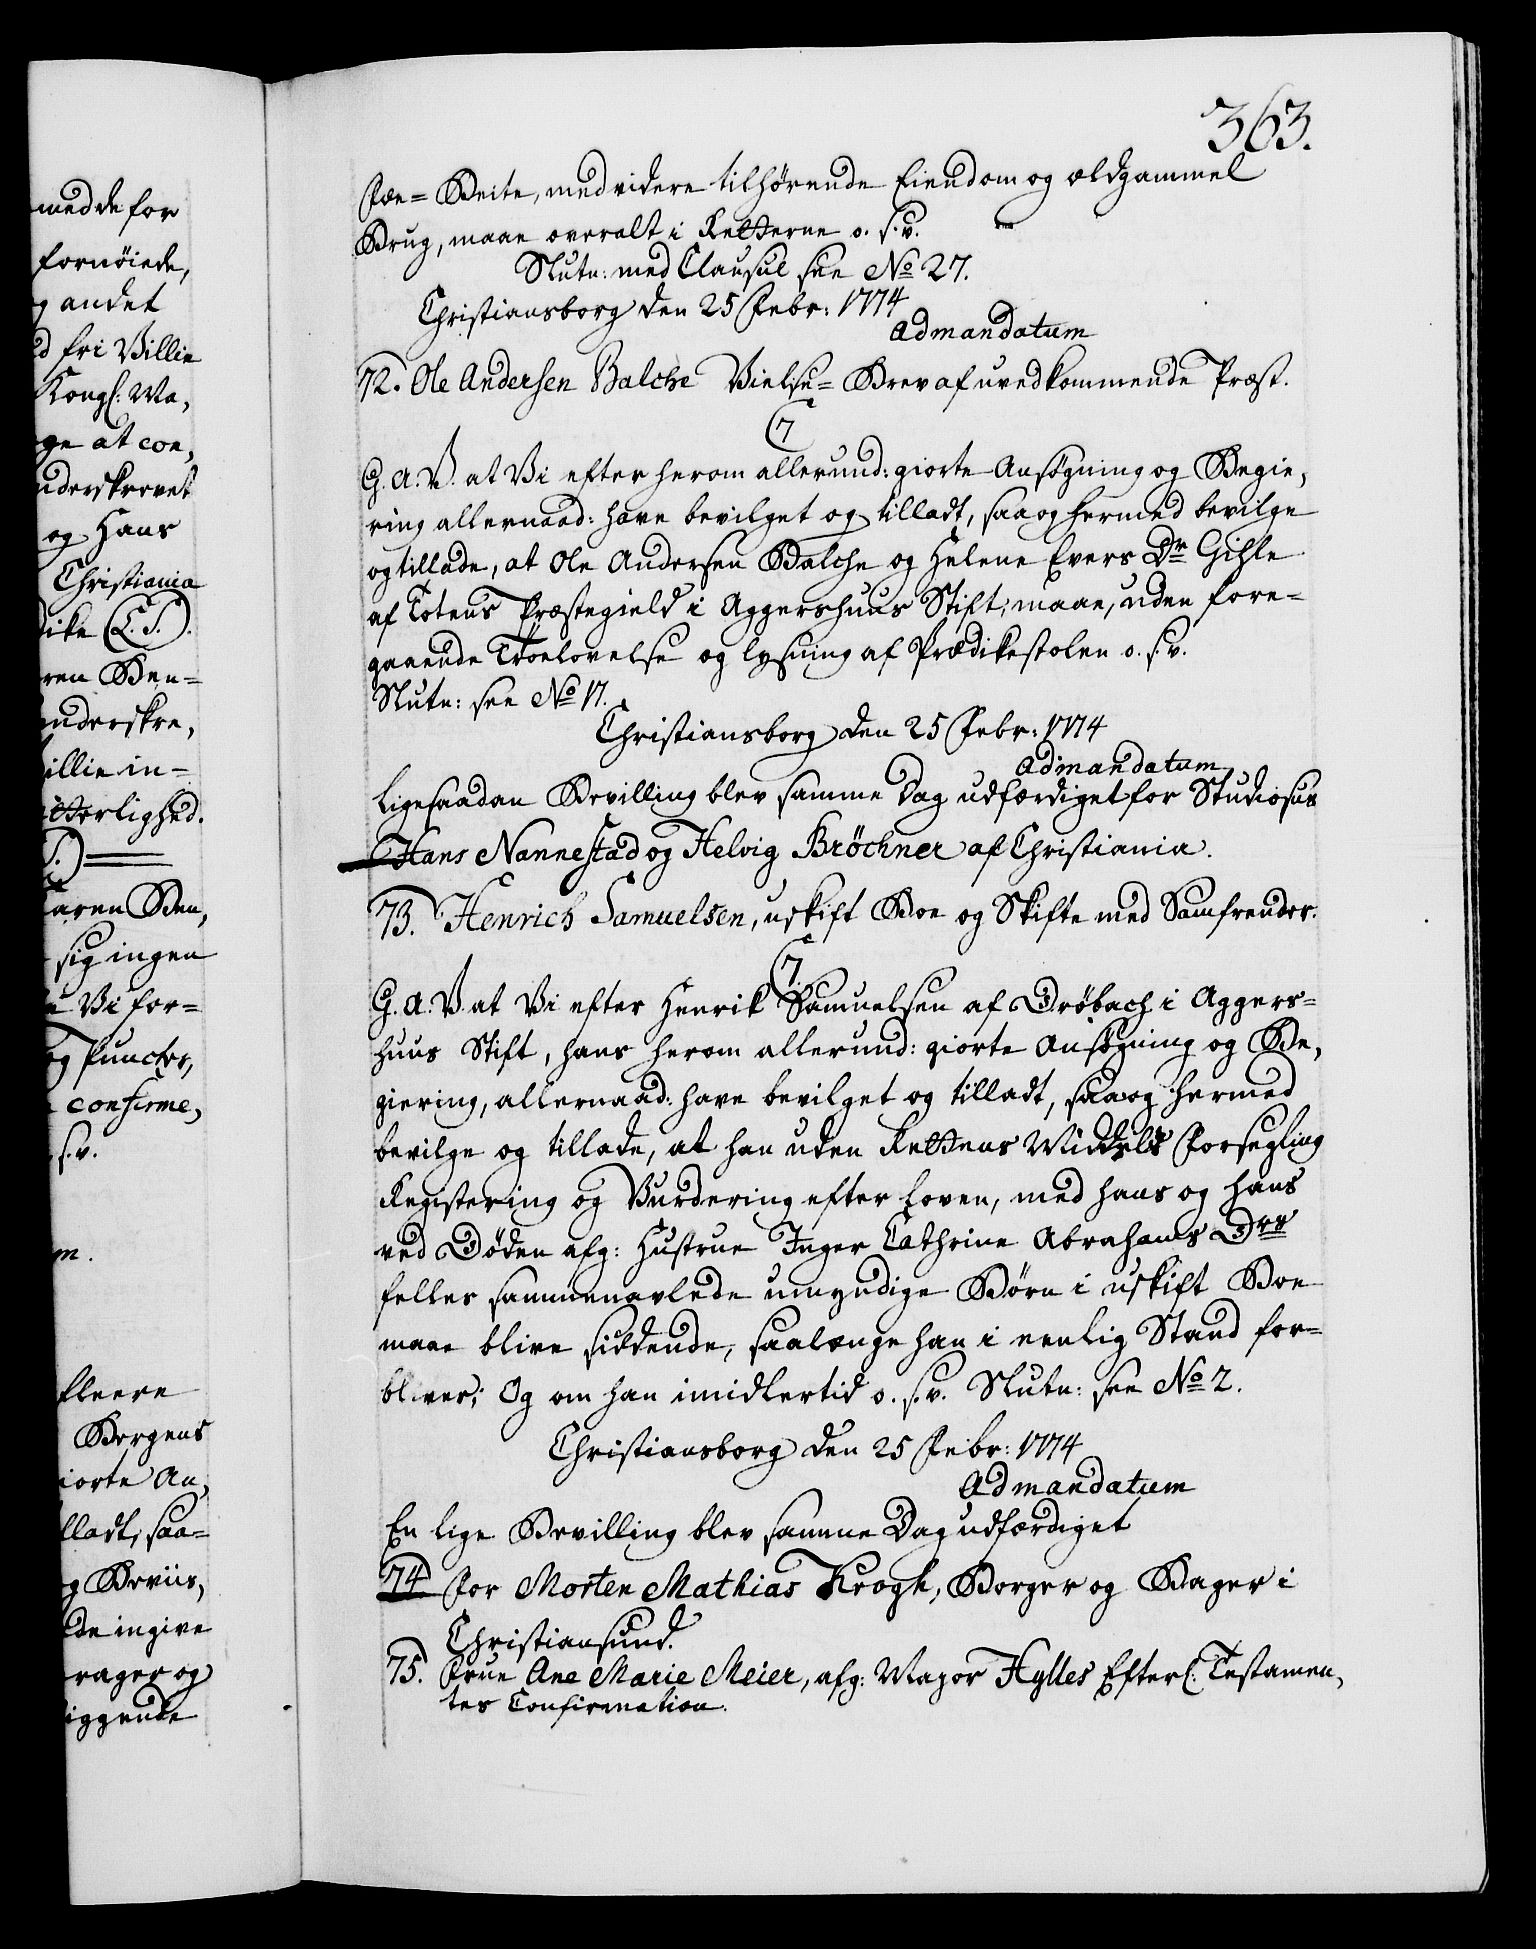 363.
Fæ= Beite, med videre tilhørende Eiendom og ældgammel
Brug, maae overalt i Retterne o. s. v.
Slutn: med Clausul see No 27.
Christiansborg den 25 Febr: 1774
Admandatum
72. Ole Andersen Balche Vielse= Brev af uvedkommende Præst.
C 7
G. A. V. at Vi efter herom allerund: giorte Ansøgning og Begie,
ring allernaad: have bevilget og tilladt, saa og hermed bevilge
og tillade, at Ole Andersen Balche og Helene Evers Dr Gihle
af Totens Præstegield i Aggershuus Stift, maae, uden fore=
gaaende Troelovelse og lysning af Prædikestolen o. s. v.
Slutn: see No 17.
Christiansborg den 25 Febr: 1774
Admandatum
Ligesaadan Bevilling blev samme Dag udfærdiget for Studiosus
Hans Nannestad og Helvig Bröchner af Christiania.
73. Henrich Samuelsen, uskift Boe og Skifte med Samfrender.
C 7.
G. A. V. at Vi efter Henrik Samuelsen af Drøbach i Aggers=
huus Stift, hans herom allerund: giorte Ansøgning og Be,
giering, allernaad: have bevilget og tilladt, saa og hermed
bevilge og tillade, at han uden Rettens Middels Forsegling
Registering og Vurdering efter Loven, med hans og hans
ved Døden afg: Hustrue Inger Cathrine Abrahams Drs
felles sammenavlede umyndige Børn i uskift Boe
maae blive siddende, saalænge han i eenlig Stand for=
bliver; Og om han imidlertid o. s. v. Slutn: see No 2.
Christiansborg den 25 Febr: 1774
Admandatum
En lige Bevilling blev samme Dag udfærdiget
74 for Morten Mathias Krogh, Borger og Bager i
Christiansund.
75. Frue Ane Marie Meier, afg: Major Hylles Efterl: Testamen,
tes Confirmation.
med de for
fornöiede,
andet
fri Villie
Kongl: Ma,
ge at con,
nderskrevet
og Hans
Christiania
(L. S.).
ren Ben=
nderskre,
illie in=
tterlighed.
S.)
aren Ben,
sig ingen
Vi for=
og Puncter,
confirme,
s. v.
m.
fleere
Bergens
iorte An,
lladt, saa=
g Beviis,
de ingive
rager og
iggende